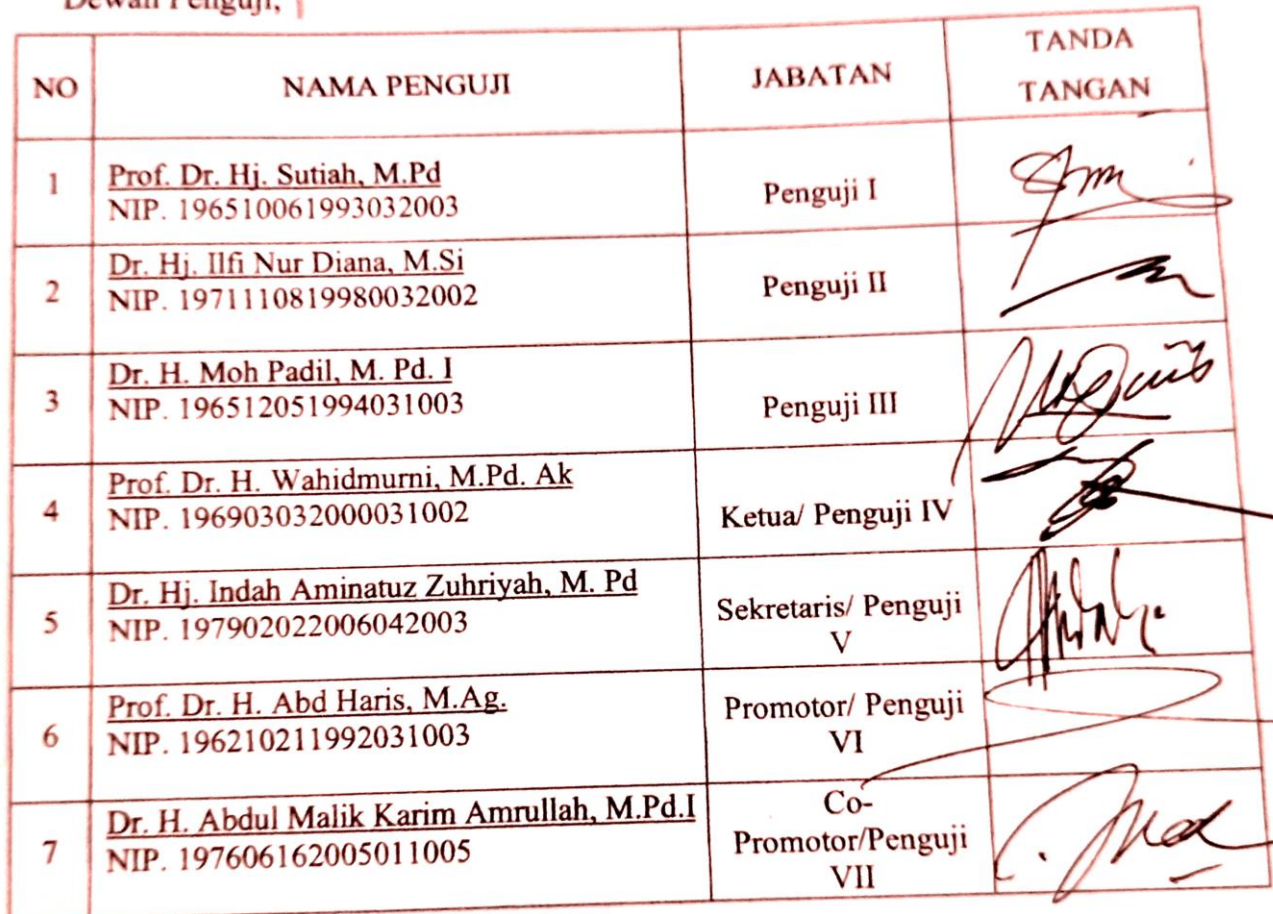 Dewan Penguji,
NO NAMA PENGUJI JABATAN TANDA TANGAN
1 Prof. Dr. Hj. Sutiah, M.Pd
NIP. 196510061993032003
Penguji I
2 Dr. Hj. Ilfi Nur Diana, M.Si
NIP. 1971110819980032002
Penguji II
3 Dr. H. Moh Padil, M. Pd. I
NIP. 196512051994031003
Penguji III
4 Prof. Dr. H. Wahidmurni, M.Pd. Ak
NIP. 196903032000031002
Ketua/ Penguji IV
5 Dr. Hj. Indah Aminatuz Zuhriyah, M. Pd
NIP. 197902022006042003
Sekretaris/ Penguji
V
6 Prof. Dr. H. Abd Haris, M.Ag.
NIP. 196210211992031003
Promotor/ Penguji
VI
7 Dr. H. Abdul Malik Karim Amrullah, M.Pd.I
NIP. 197606162005011005
Co-
Promotor/Penguji
VII